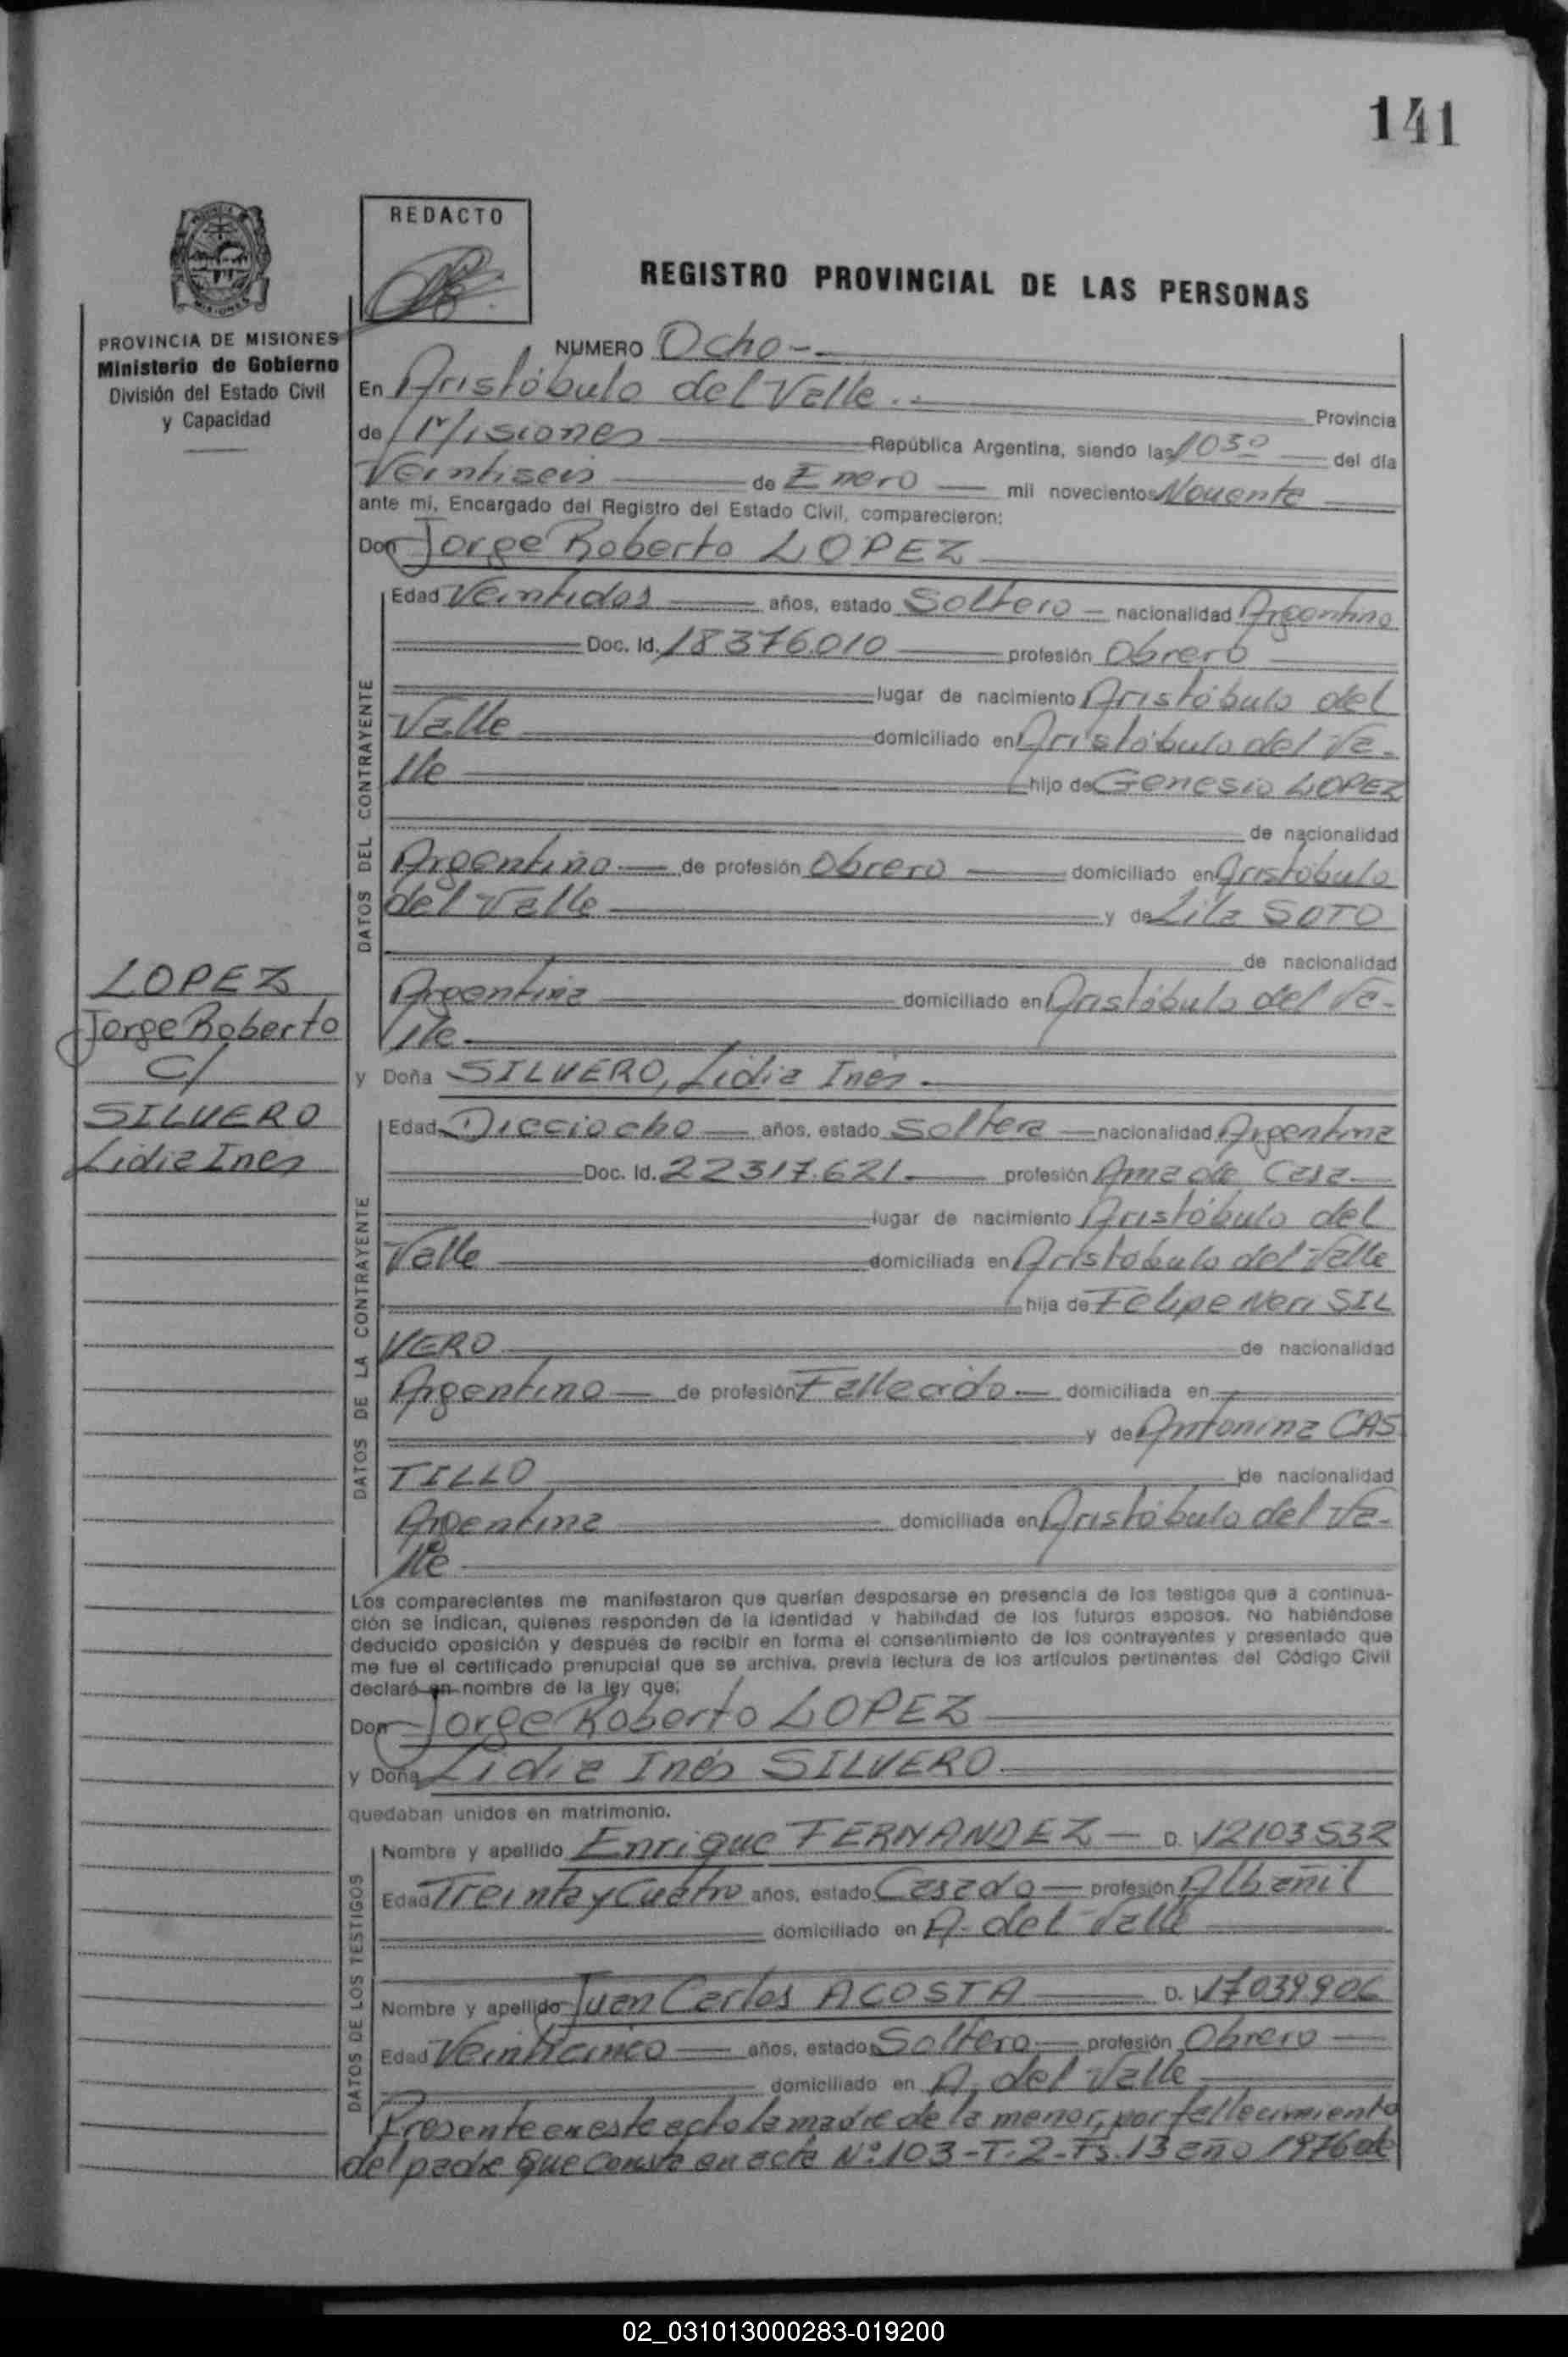 141
REDACTO
REGISTRO PROVINCIAL DE LAS PERSONAS
PROVINCIA DE MISIONES
Ministerio de Gobierno
División del Estado Civil
y Capacidad
NUMERO Ocho -
En Aristóbulo del Valle Provincia
de Misiones República Argentina, siendo las 1030 del día
Veintiseis de Enero mil novecientos Noventa
ante mi, Encargado del Registro del Estado Civil, comparecieron:
Don Jorge Roberto LOPEZ
Edad Veintidos años, estado Soltero nacionalidad Argentino
Doc. Id. 18376010 profesión Obrero
lugar de nacimiento Aristóbulo del
Valle domiciliado en Aristóbulo del Va-
lle hijo de Genesio LOPEZ
de nacionalidad
Argentino de profesión Obrero domiciliado en Aristóbulo
del Valle y de Lila SOTO
de nacionalidad
Argentina domiciliado en Aristóbulo del Va-
lle
DATOS DEL CONTRAYENTE
LOPEZ
Jorge Roberto
C/
SILVERO
Lidia Ines
y Doña SILVERO, Lidia Ines
Edad Dieciocho años, estado Soltera nacionalidad Argentina
Doc. Id. 22317.621 profesión Ama de Casa
lugar de nacimiento Aristóbulo del
Valle domiciliada en Aristóbulo del Valle
hija de Felipe Neri SIL
VERO de nacionalidad
Argentino de profesión Fallecido domiciliada en
y de Antonina CAS
TILLO de nacionalidad
Argentina domiciliada en Aristóbulo del Va-
lle
DATOS DE LA CONTRAYENTE
Los comparecientes me manifestaron que querían desposarse en presencia de los testigos que a continua-
ción se indican, quienes responden de la identidad y habilidad de los futuros esposos. No habiéndose
deducido oposición y después de recibir en forma el consentimiento de los contrayentes y presentado que
me fue el certificado prenupcial que se archiva, previa lectura de los artículos pertinentes del Código Civil
declaró en nombre de la ley que:
Don Jorge Roberto LOPEZ
y Doña Lidia Inés SILVERO
quedaban unidos en matrimonio.
Nombre y apellido Enrique FERNANDEZ D. I. 12103532
Edad Treinta y Cuatro años, estado Casado profesión Albañil
domiciliado en A. del Valle
Nombre y apellido Juan Carlos ACOSTA D. I. 17039906
Edad Veinticinco años, estado Soltero profesión Obrero
domiciliado en A. del Valle
DATOS DE LOS TESTIGOS
Presente en este acto la madre de la menor, por fallecimiento
del padre que consta en acta Nº 103-T.2-Fs.13 año 1976 de
02_031013000283-019200